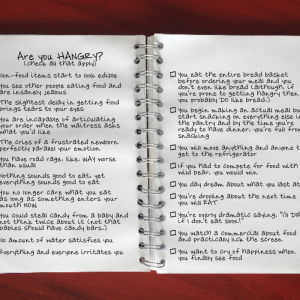 Are you HANGRY?
(check all that apply)
Non-food items start to look edible
You see other people eating food and
are insanely jealous
The slightest delay in getting food
brings tears to your eyes
You are incapable of articulating
your order when the waitress asks
what you'd like
The cries of a frustrated newborn
perfectly parallel your emotion
You have road rage, like, WAY worse
than usual
Nothing sounds good to eat, yet
everything sounds good to eat
You no longer care what you eat
as long as something enters your
mouth NOW
You could steal candy from a baby and
not think twice about it (not that
babies should have candy bars.)
No amount of water satisfies you
Everything and everyone irritates you
You eat the entire bread basket
before ordering your meal and you
don't even like bread (although, if
you're prone to getting hangry then
you probably DO like bread.)
You begin making an actual meal but
start snacking on everything else in
the pantry and by the time you're
ready to have dinner, you're full from
snacking
You will move anything and anyone to
get to the refrigerator
If you had to compete for food with a
wild bear, you would win.
You day dream about what you last ate
You're drooling about the next time
you will EAT
You're overly dramatic saying, "I'll DIE
if I don't eat soon!"
You watch a commercial about food
and practically lick the screen
You want to cry of happiness when
you finally see food